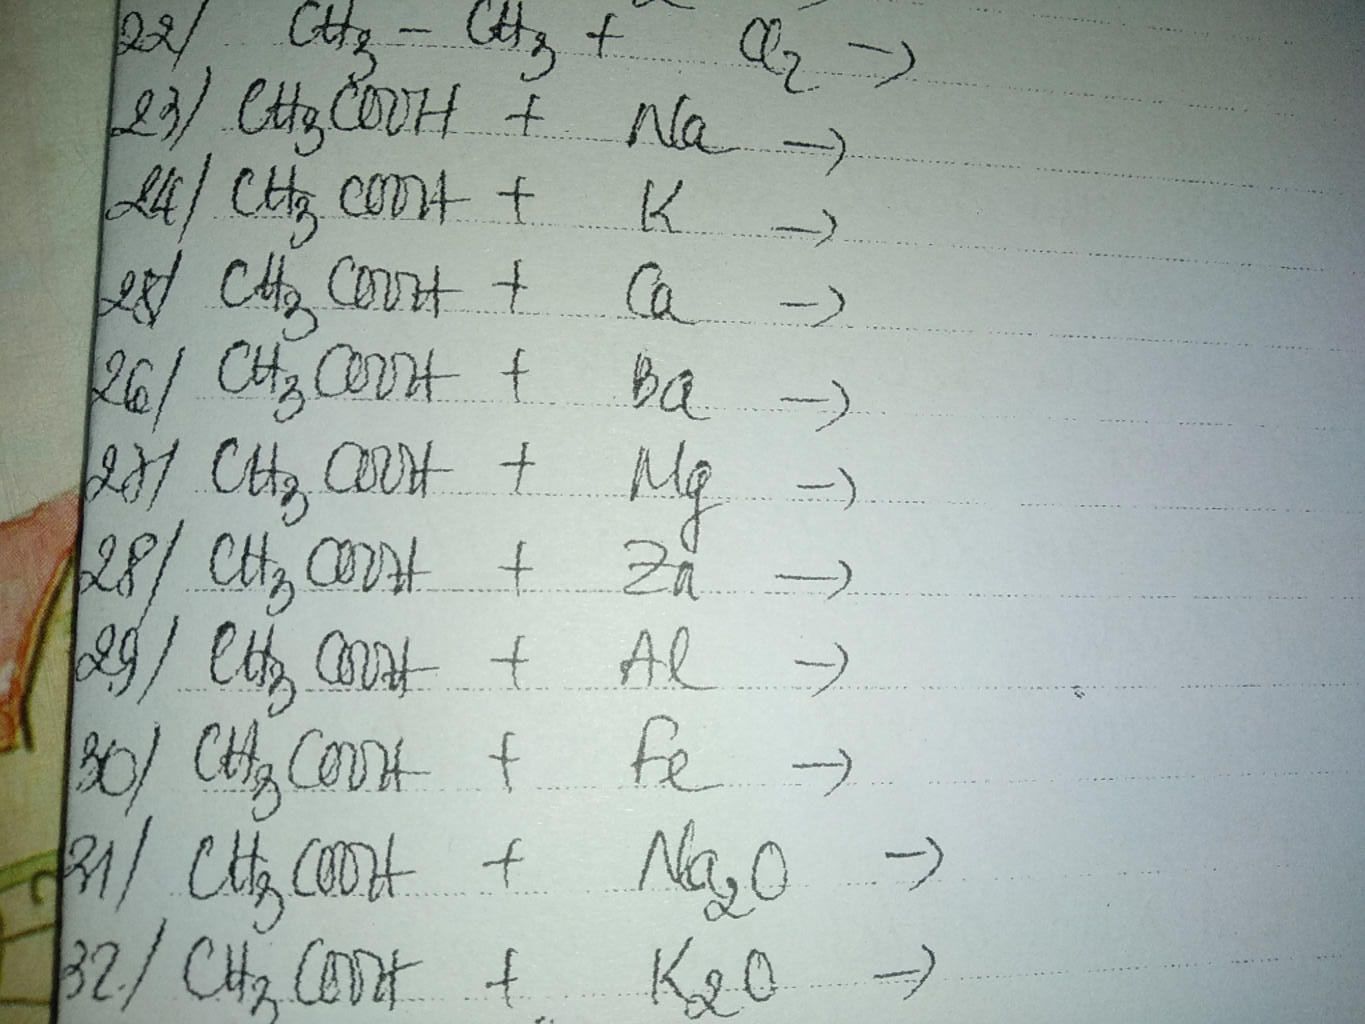 22/ CH3 - CH3 + Cl2 →
23/ CH3COOH + Na →
24/ CH3COOH + K →
25/ CH3COOH + Ca →
26/ CH3COOH + Ba →
27/ CH3COOH + Mg →
28/ CH3COOH + Zn →
29/ CH3COOH + Al →
30/ CH3COOH + Fe →
31/ CH3COOH + Na2O →
32/ CH3COOH + K2O →